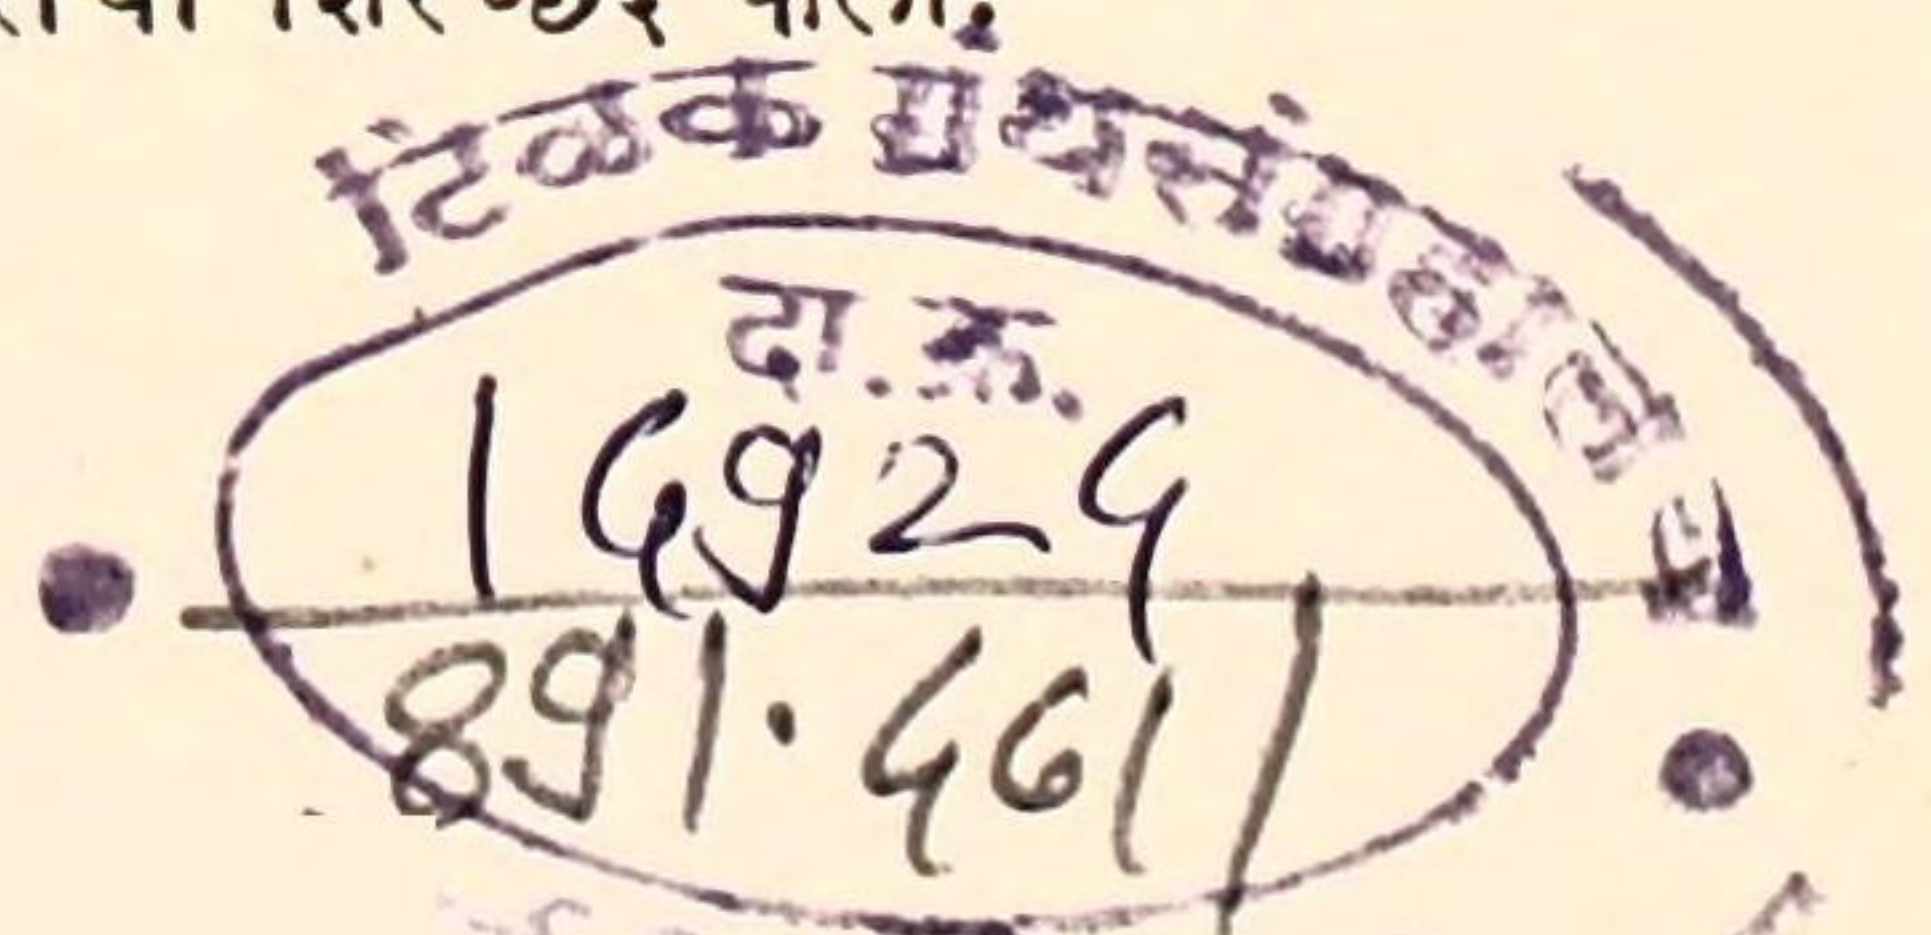 टिळक ग्रंथसंग्रहालय
दा. क्र.
14924
891.461/